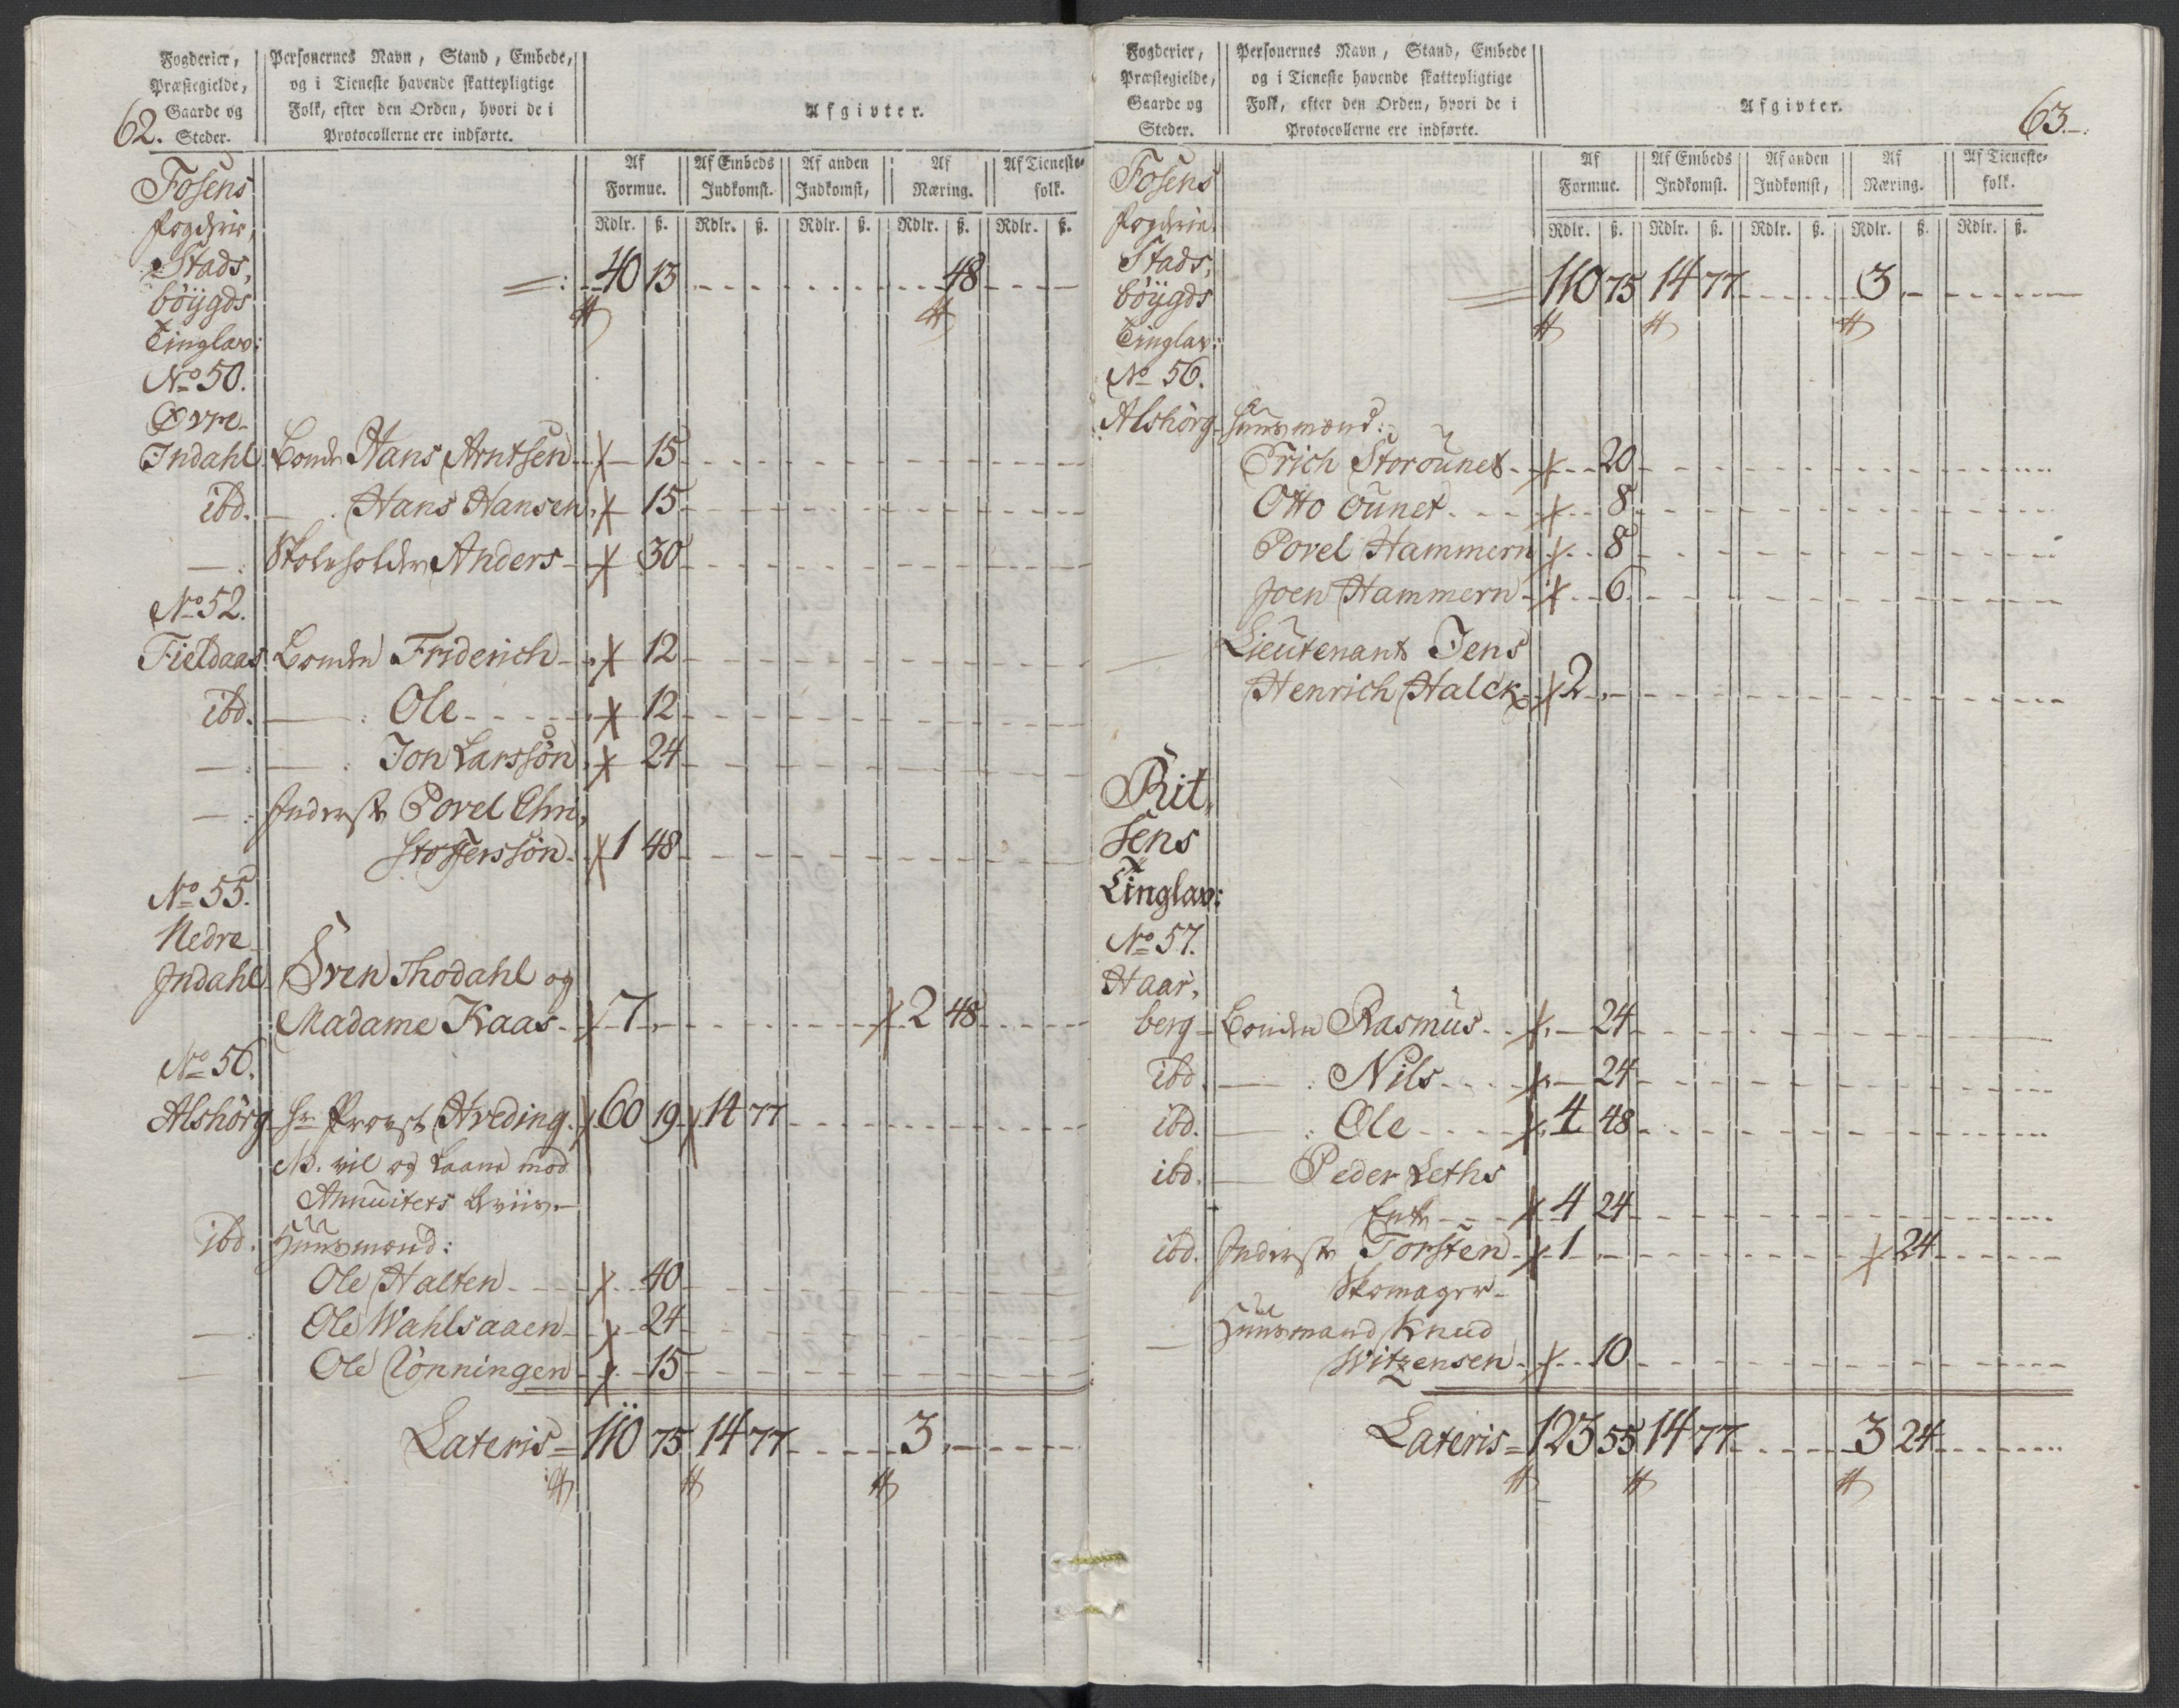 62.
Fogderier,
Præstegielde,
Gaarde og
Steder.
Personernes Navn, Stand, Embede,
og i Tieneste havende skattepligtige
Folk, efter den Orden, hvori de i
Protocollerne ere indførte.
Afgivter.
Af Formue. Af Embeds Indkomst. Af anden Indkomst, Af Næring. Af Tieneste-folk.
Rdlr. ß. Rdlr. ß. Rdlr. ß. Rdlr. ß. Rdlr. ß.
Fosens
fogderie,
Stads,
böygds
Tinglav:
40 13 48
No 50.
Øvre
Indahl Bonde Hans Arntsen 15
ibd. — Hans Hansen 15
— Skoleholder Anders 30
No 52.
Fieldaas Bonden Friderich 12
ibd. — : Ole 12
— : — : Jon Larssön 24
— : Inderste Povel Chri,
stofferssön 1 48
No 55.
Nedre
Indahl Sven Thodahl og
Madame Kaas 7 2 48
No 56.
Alshörg Hr Provst Hveding 60 19 14 77
NB. vil og laane mod
Annuitets Beviis.
Ibd. Huusmænd:
Ole Halten 40
— : Ole Wahlsaaen 24
— Ole Rönningen 15
Lateris = 110 75 14 77 3
63.
Fogderier,
Præstegielde,
Gaarde og
Steder.
Personernes Navn, Stand, Embede
og i Tieneste havende skattepligtige
Folk, efter den Orden, hvori de i
Protocollerne ere indførte.
Afgivter.
Af Formue. Af Embeds Indkomst. Af anden Indkomst, Af Næring. Af Tieneste-folk.
Rdlr. ß. Rdlr. ß. Rdlr. ß. Rdlr. ß. Rdlr. ß.
Fosens
fogderie.
Stads,
böygds
Tinglav:
110 75 14 77 3
No 56.
Alshörg Huusmænd:
Erich Storounet 20
Otto Ounet 8
Povel Hammern 8
Joen Hammern 6
— Lieutenant Jens
Henrich Halck 2
Rit,
sens
Tinglav:
No 57.
Haar,
berg Bonden Rasmus 24
ibd. — : Nils 24
ibd. — : Ole 4 48
ibd. — Peder Leths
Enke 4 24
ibd. Inderste Torsten 1 24
Skomager
— Huusmand Knud
Witzensen 10
Lateris = 123 55 14 77 3 24